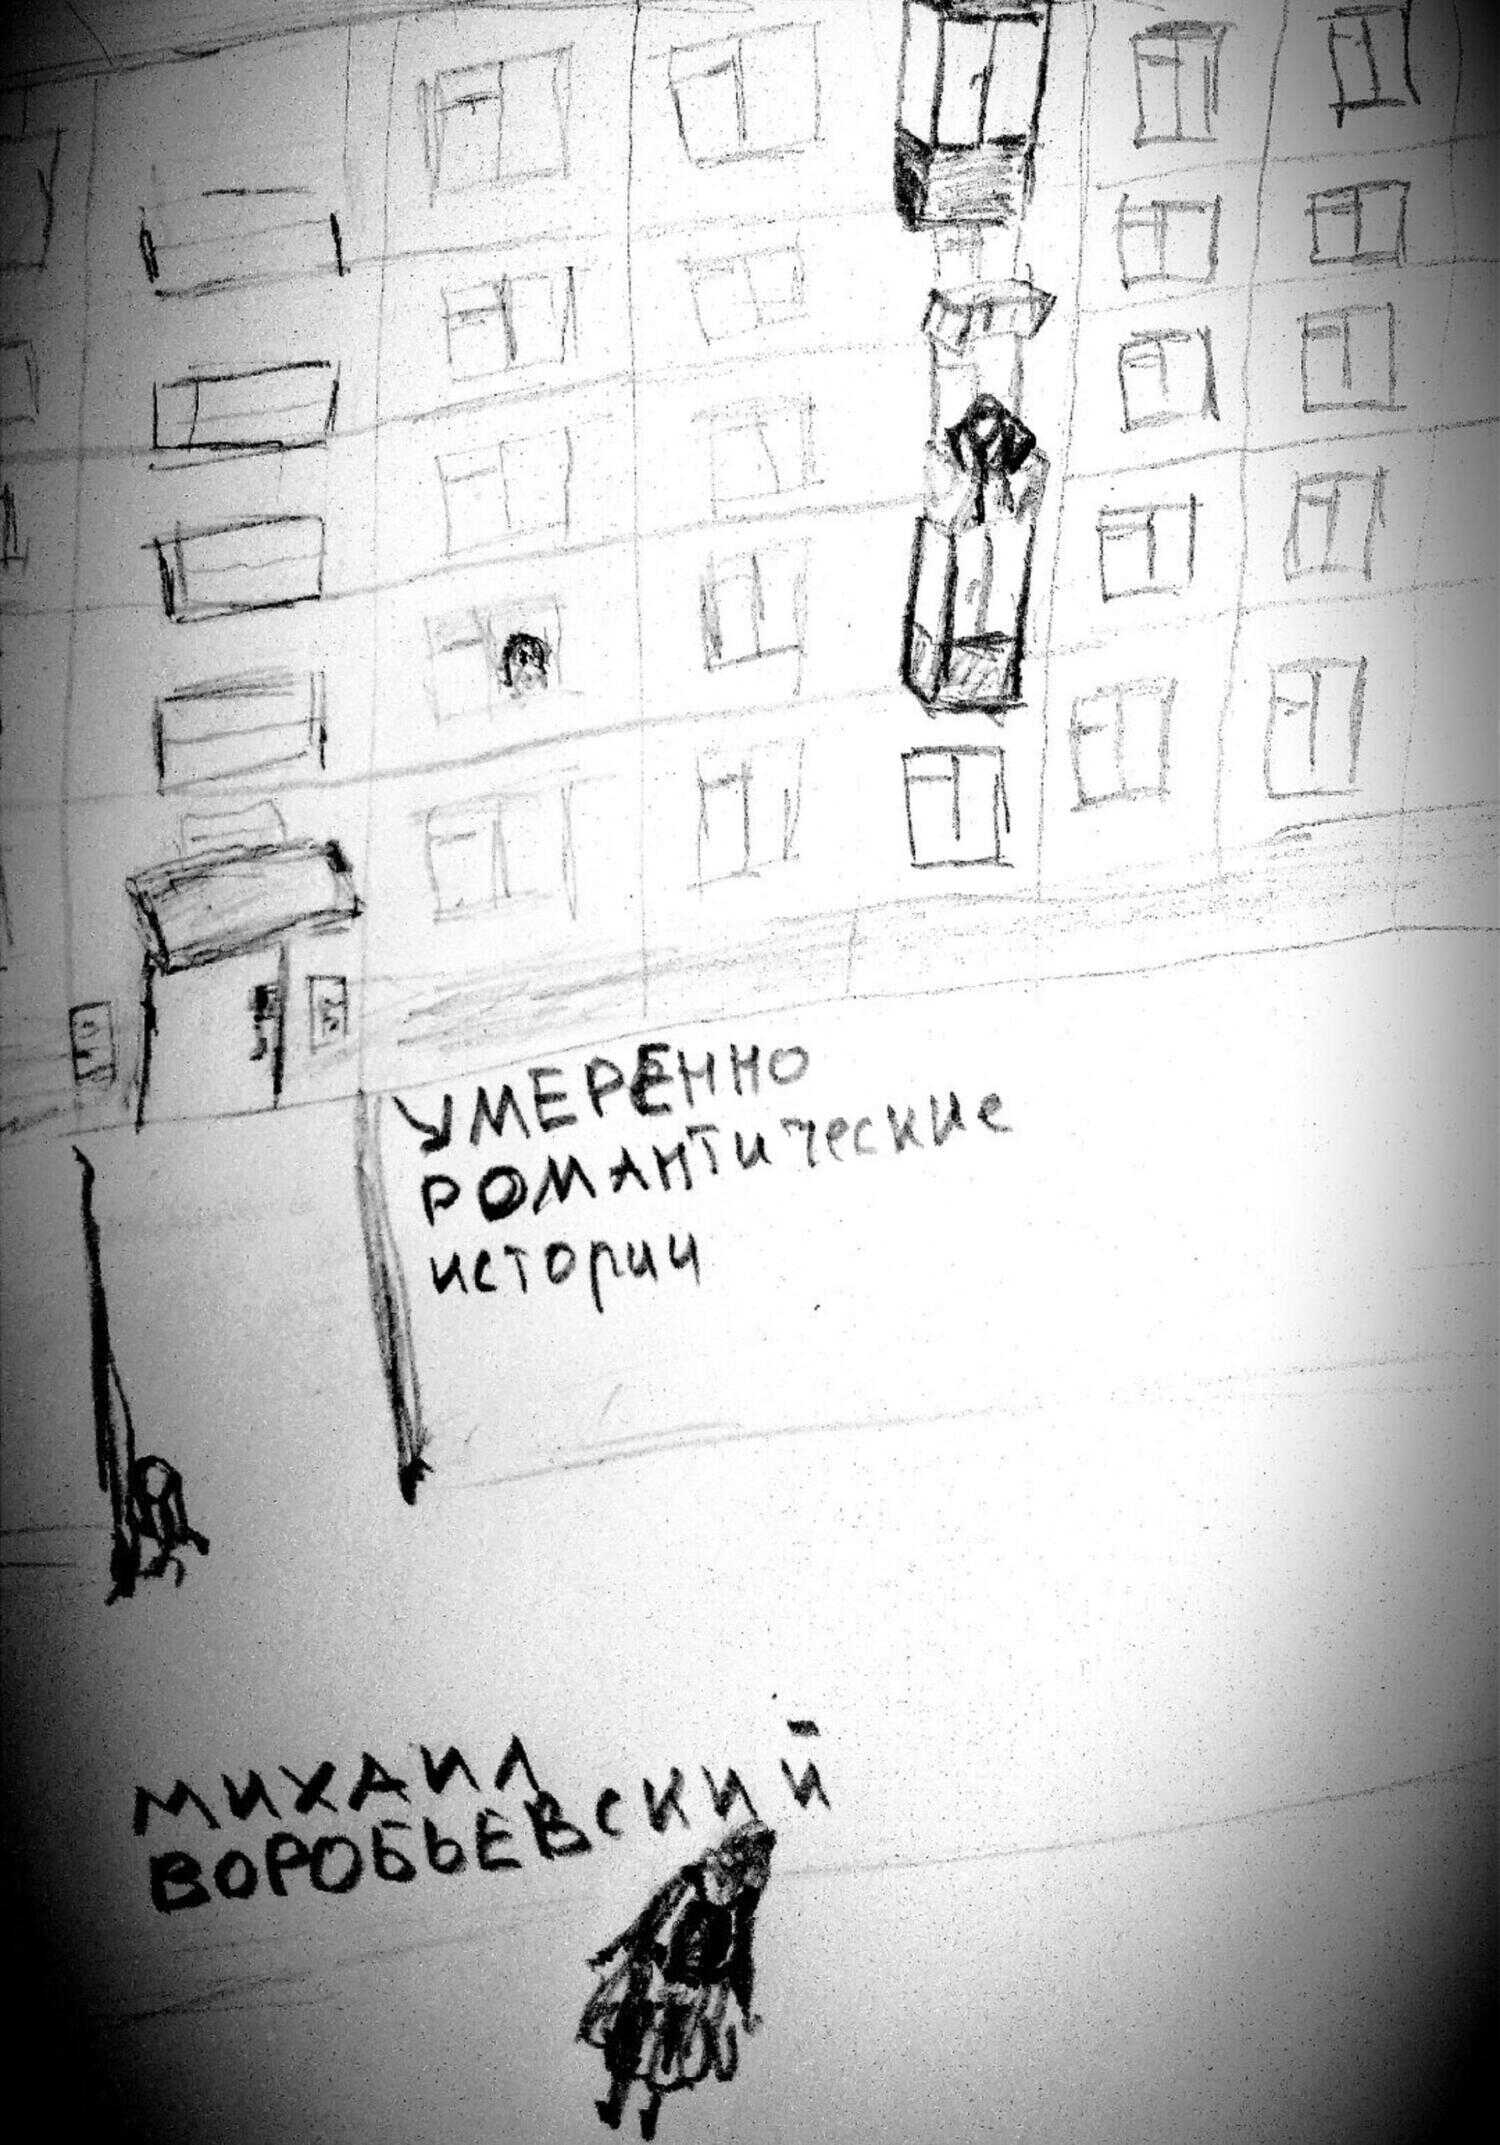 УМЕРЕННО
РОМАНТические
истории
МИХАИЛ
ВОРОБЬЕВСКИЙ